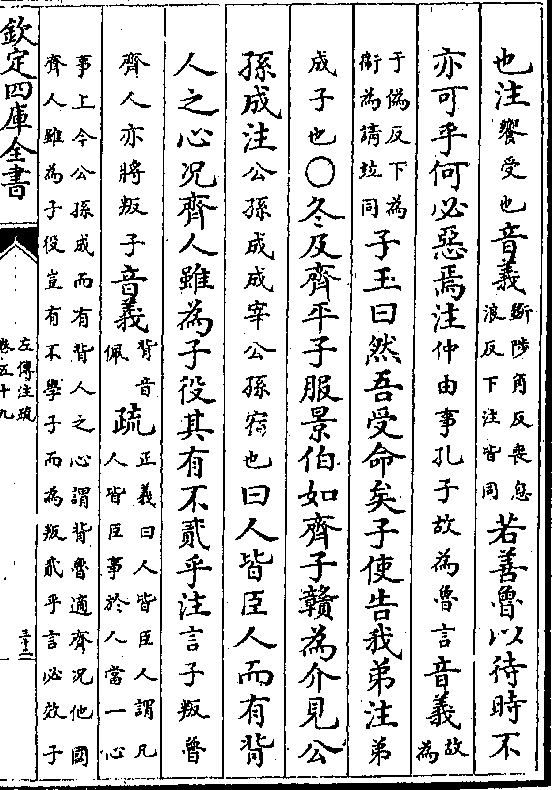 也注饗受也音義斲陟角反喪息
浪反下注皆同若善魯以待時不
亦可乎何必惡焉注仲由事孔子故為魯言音義故為
于偽反下為
衛為請竝同子玉曰然吾受命矣子使告我弟注弟
成子也○冬及齊平子服景伯如齊子贛為介見公
孫成注公孫成成宰公孫宿也曰人皆臣人而有背
人之心况齊人雖為子役其有不貳乎注言子叛魯
齊人亦將叛子音義背音
佩疏正義曰人皆臣人謂凡
人皆臣事於人當一心
事上今公孫成而有背人之心謂背魯適齊况他國
齊人雖為子役豈有不學子而為叛貳乎言必效子
欽定四庫全書
左傳注疏
卷五十九
三十二